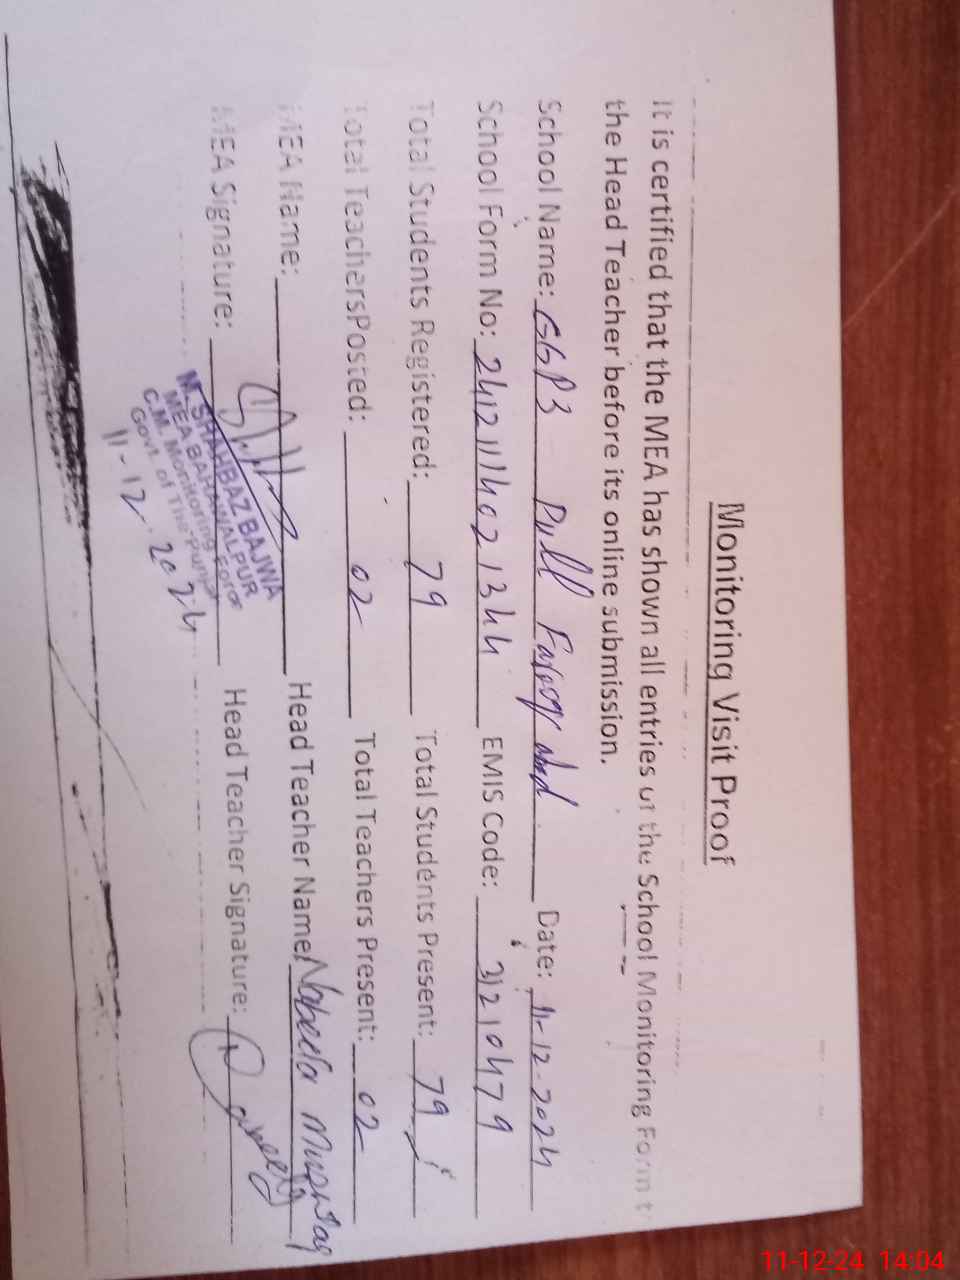 Monitoring Visit Proof
It is certified that the MEA has shown all entries of the School Monitoring Form t
the Head Teacher before its online submission.
School Name: GGPS Dull Farooq abad Date: 11-12-2024
School Form No: 24121114021344 EMIS Code: 31210479
Total Students Registered: 79 Total Students Present: 79
Total TeachersPosted: 02 Total Teachers Present: 02
MEA Name: Head Teacher Name: Nabeela Mushtaq
MEA Signature: Head Teacher Signature:
M. SHAHBAZ BAJWA
MEA BAHAWALPUR
C.M. Monitoring Force
Govt. of The Punjab
11-12-2024
11-12-24 14:04